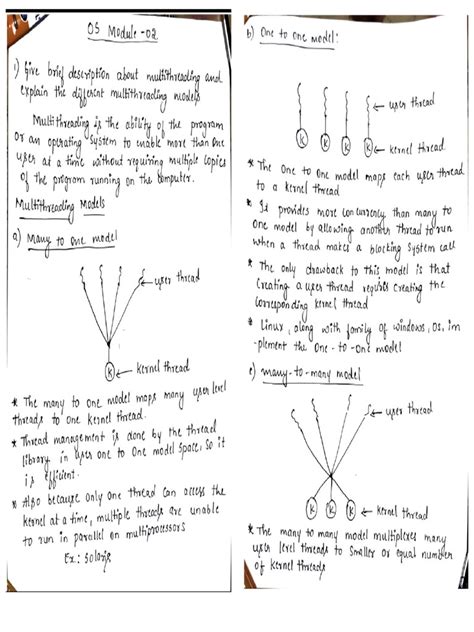 OS Module -02
1) Give brief description about multithreading and
explain the different multithreading models
Multithreading is the ability of the program
or an operating system to enable more than one
user at a time without requiring multiple copies
of the program running on the computer.
Multithreading Models
a) Many to one model
user thread
K kernel thread
* The many to one model maps many user level
threads to one kernel thread.
* Thread management is done by the thread
library in user one to one model space, so it
is efficient.
* Also because only one thread can access the
kernel at a time, multiple threads are unable
to run in parallel on multiprocessors
Ex: Solaris
b) One to one model:
user thread
K K K K kernel thread.
* The one to one model maps each user thread
to a kernel thread
* It provides more concurrency than many to
one model by allowing another thread to run
when a thread makes a blocking system call
* The only drawback to this model is that
creating a user thread requires creating the
corresponding kernel thread
* Linux, along with family of windows, OS, im
plement the one-to-one model
c) many-to-many model
user thread
K K K kernel thread
* The many to many model multiplexes many
user level threads to smaller or equal number
of kernel threads